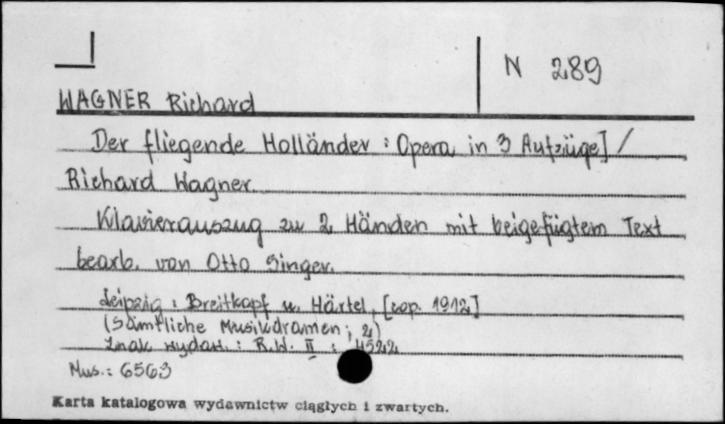 N 289
WAGNER Richard
Der fliegende Holländer : Opera in 3 Aufzüge] /
Richard Wagner
Klavierauszug zu 2 Händen mit beigefügtem Text
bearb. von Otto Singer.
Leipzig : Breitkopf u. Härtel, [cop. 1912]
(Sämtliche Musikdramen ; 2)
Znak wydaw. : R.W. II : 4522
Mus.: 6563
Karta katalogowa wydawnictw ciągłych i zwartych.